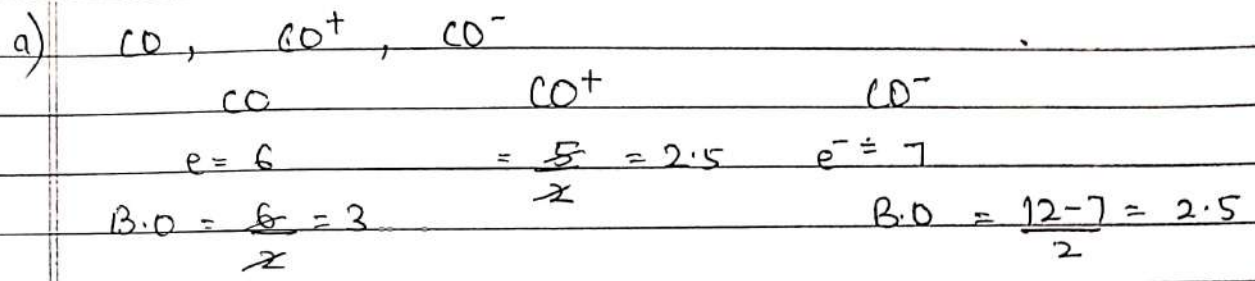 a) CO, CO⁺, CO⁻
CO CO⁺ CO⁻
e = 6 = 5/2 = 2.5 e⁻ = 7
B.O = 6/2 = 3 B.O = 12-7/2 = 2.5